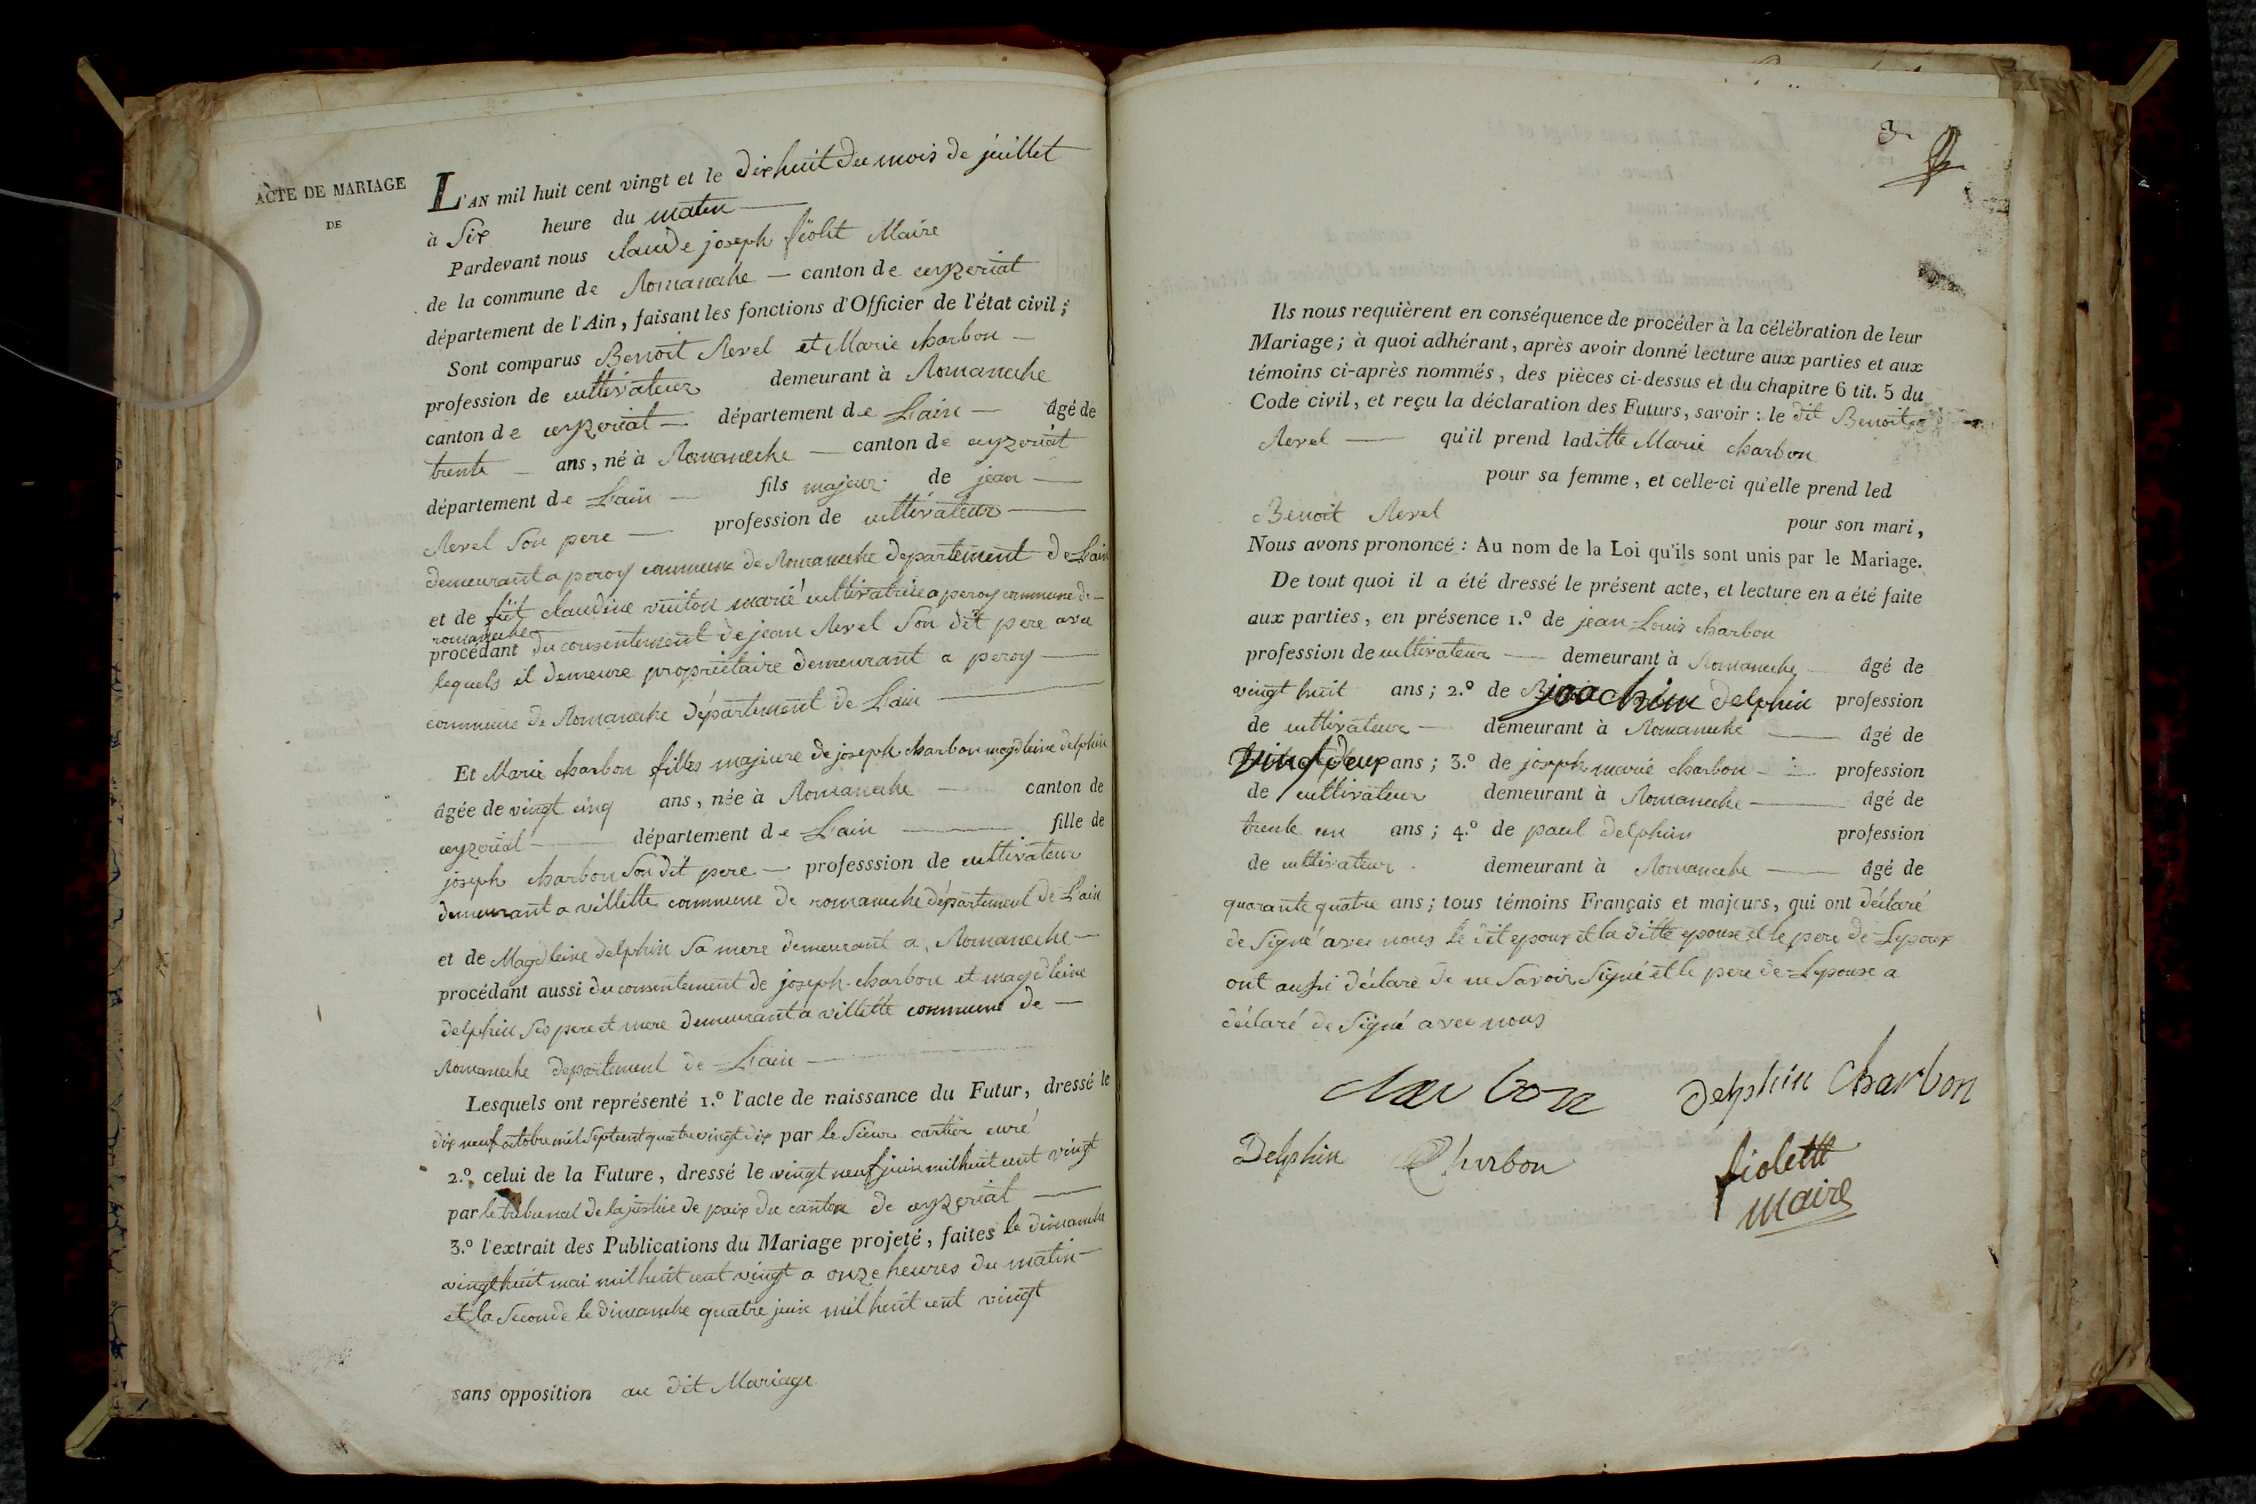 ACTE DE MARIAGE
DE
L'AN mil huit cent vingt et le dixhuit du mois de juillet
à Six heure du matin
Pardevant nous claude joseph fiolet Maire
de la commune de Romaneche canton de ceyzeriat
département de l'Ain, faisant les fonctions d'Officier de l'état civil;
Sont comparus Benoit Revel et Marie charbon
profession de cultivateur demeurant à Romaneche
canton de ceyzeriat département de L'ain âgé de
trente ans, né à Romaneche canton de ceyzeriat
département de L'ain fils majeur de jean
Revel Son pere profession de cultivateur
demeurant a peroy commune de Romaneche departement de L'ain
et de füt claudine vuiton marié cultivatrice a peroy commune de
romaneche
procédant du consentement de jean Revel Son dit pere avec
lequels il demeure propriétaire demeurant a peroy
commune de Romaneche département de L'ain
Et Marie charbon filles majeure de joseph charbon magdleine delphin
âgée de vingt cinq ans, née à Romaneche canton de
ceyzeriat département de L'ain fille de
joseph charbon Son dit pere professsion de cultivateur
demeurant a villette commune de romaneche département de L'ain
et de Magdleine delphin Sa mere demeurant a Romaneche
procédant aussi du consentement de joseph charbon et magdleine
delphin Ses pere et mere demeurant a villette commune de
Romaneche departement de L'ain
Lesquels ont représenté 1.º l'acte de naissance du Futur, dressé le
dix neuf octobre mil Septcent quatre vingt dix par le Sieur cartier curé
2.º celui de la Future, dressé le vingt neuf juin mil huit cent vingt
par le tribunal de la justice de paix du canton de ceyzeriat
3.º l'extrait des Publications du Mariage projeté, faites le dimanche
vingt huit mai mil huit cent vingt a onze heures du matin
et la Seconde le dimanche quatre juin mil huit cent vingt
sans opposition au dit Mariage
3
Ils nous requièrent en conséquence de procéder à la célébration de leur
Mariage; à quoi adhérant, après avoir donné lecture aux parties et aux
témoins ci-après nommés, des pièces ci-dessus et du chapitre 6 tit. 5 du
Code civil, et reçu la déclaration des Futurs, savoir: le dit Benoit
Revel qu'il prend laditte Marie charbon
pour sa femme, et celle-ci qu'elle prend led
Benoit Revel pour son mari,
Nous avons prononcé: Au nom de la Loi qu'ils sont unis par le Mariage.
De tout quoi il a été dressé le présent acte, et lecture en a été faite
aux parties, en présence 1.º de jean Louis charbon
profession de cultivateur demeurant à Romaneche âgé de
vingt huit ans; 2.º de joachim delphin profession
de cultivateur demeurant à Romaneche âgé de
vingt deux ans; 3.º de joseph marie charbon profession
de cultivateur demeurant à Romaneche âgé de
trente un ans; 4.º de paul delphin profession
de cultivateur demeurant à Romaneche âgé de
quarante quatre ans; tous témoins Français et majeurs, qui ont déclaré
de Signé avec nous le dit epoux et la ditte epouse et le pere de Lepoux
ont aussi déclaré de ne Savoir Signé et le pere de Lepouse a
déclaré de Signé avec nous
charbon delphin charbon
Delphin Charbon
fiolette
maire